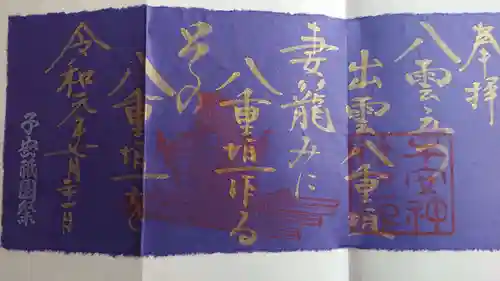 奉拝
八雲立つ
出雲八重垣
妻籠みに
八重垣作る
その
八重垣を
令和元年七月二十一日
子安祇園祭
子安神社